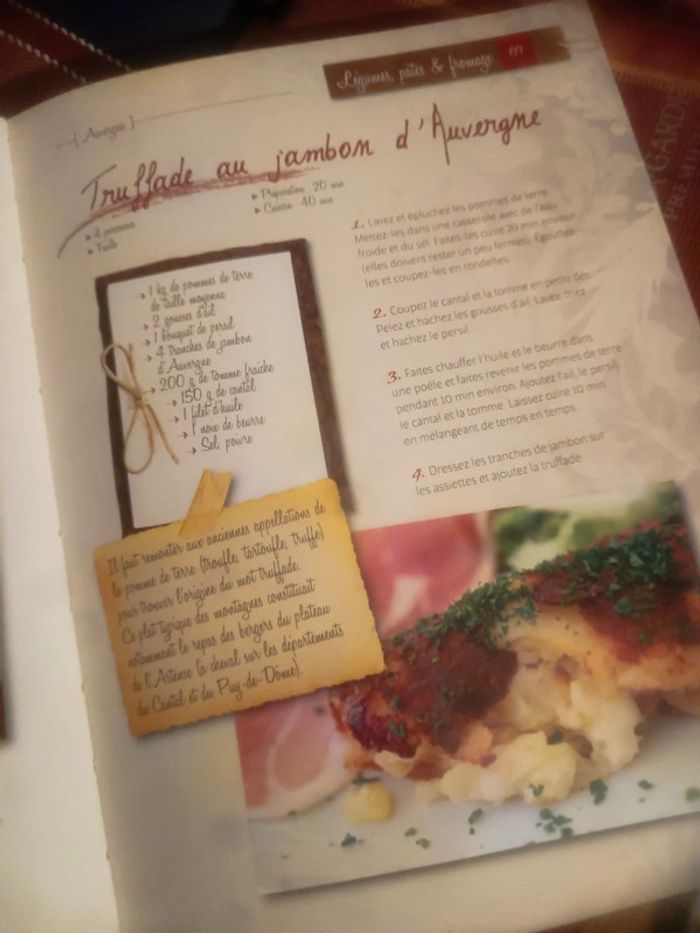 Légumes, pates & fromage 69
[ Auvergne ]
Truffade au jambon d'Auvergne
▸ 4 personnes
▸ Facile
▸ Préparation 20 min
▸ Cuisson 40 min
→ 1 kg de pommes de terre
de taille moyenne
→ 2 gousses d'ail
→ 1 bouquet de persil
→ 4 tranches de jambon
d'Auvergne
→ 200 g de tomme fraîche
→ 150 g de cantal
→ 1 filet d'huile
→ 1 noix de beurre
→ Sel, poivre
1. Lavez et épluchez les pommes de terre.
Mettez-les dans une casserole avec de l'eau
froide et du sel. Faites-les cuire 20 min environ
(elles doivent rester un peu fermes). Égouttez-
les et coupez-les en rondelles.
2. Coupez le cantal et la tomme en petits dés.
Pelez et hachez les gousses d'ail. Lavez, triez
et hachez le persil.
3. Faites chauffer l'huile et le beurre dans
une poêle et faites revenir les pommes de terre
pendant 10 min environ. Ajoutez l'ail, le persil,
le cantal et la tomme. Laissez cuire 10 min
en mélangeant de temps en temps.
4. Dressez les tranches de jambon sur
les assiettes et ajoutez la truffade.
Il faut remonter aux anciennes appellations de
la pomme de terre (troufle, tartoufle, truffe)
pour trouver l'origine du mot truffade.
Ce plat typique des montagnes constituait
notamment le repas des bergers du plateau
de l'Artense (à cheval sur les départements
du Cantal et du Puy-de-Dôme).